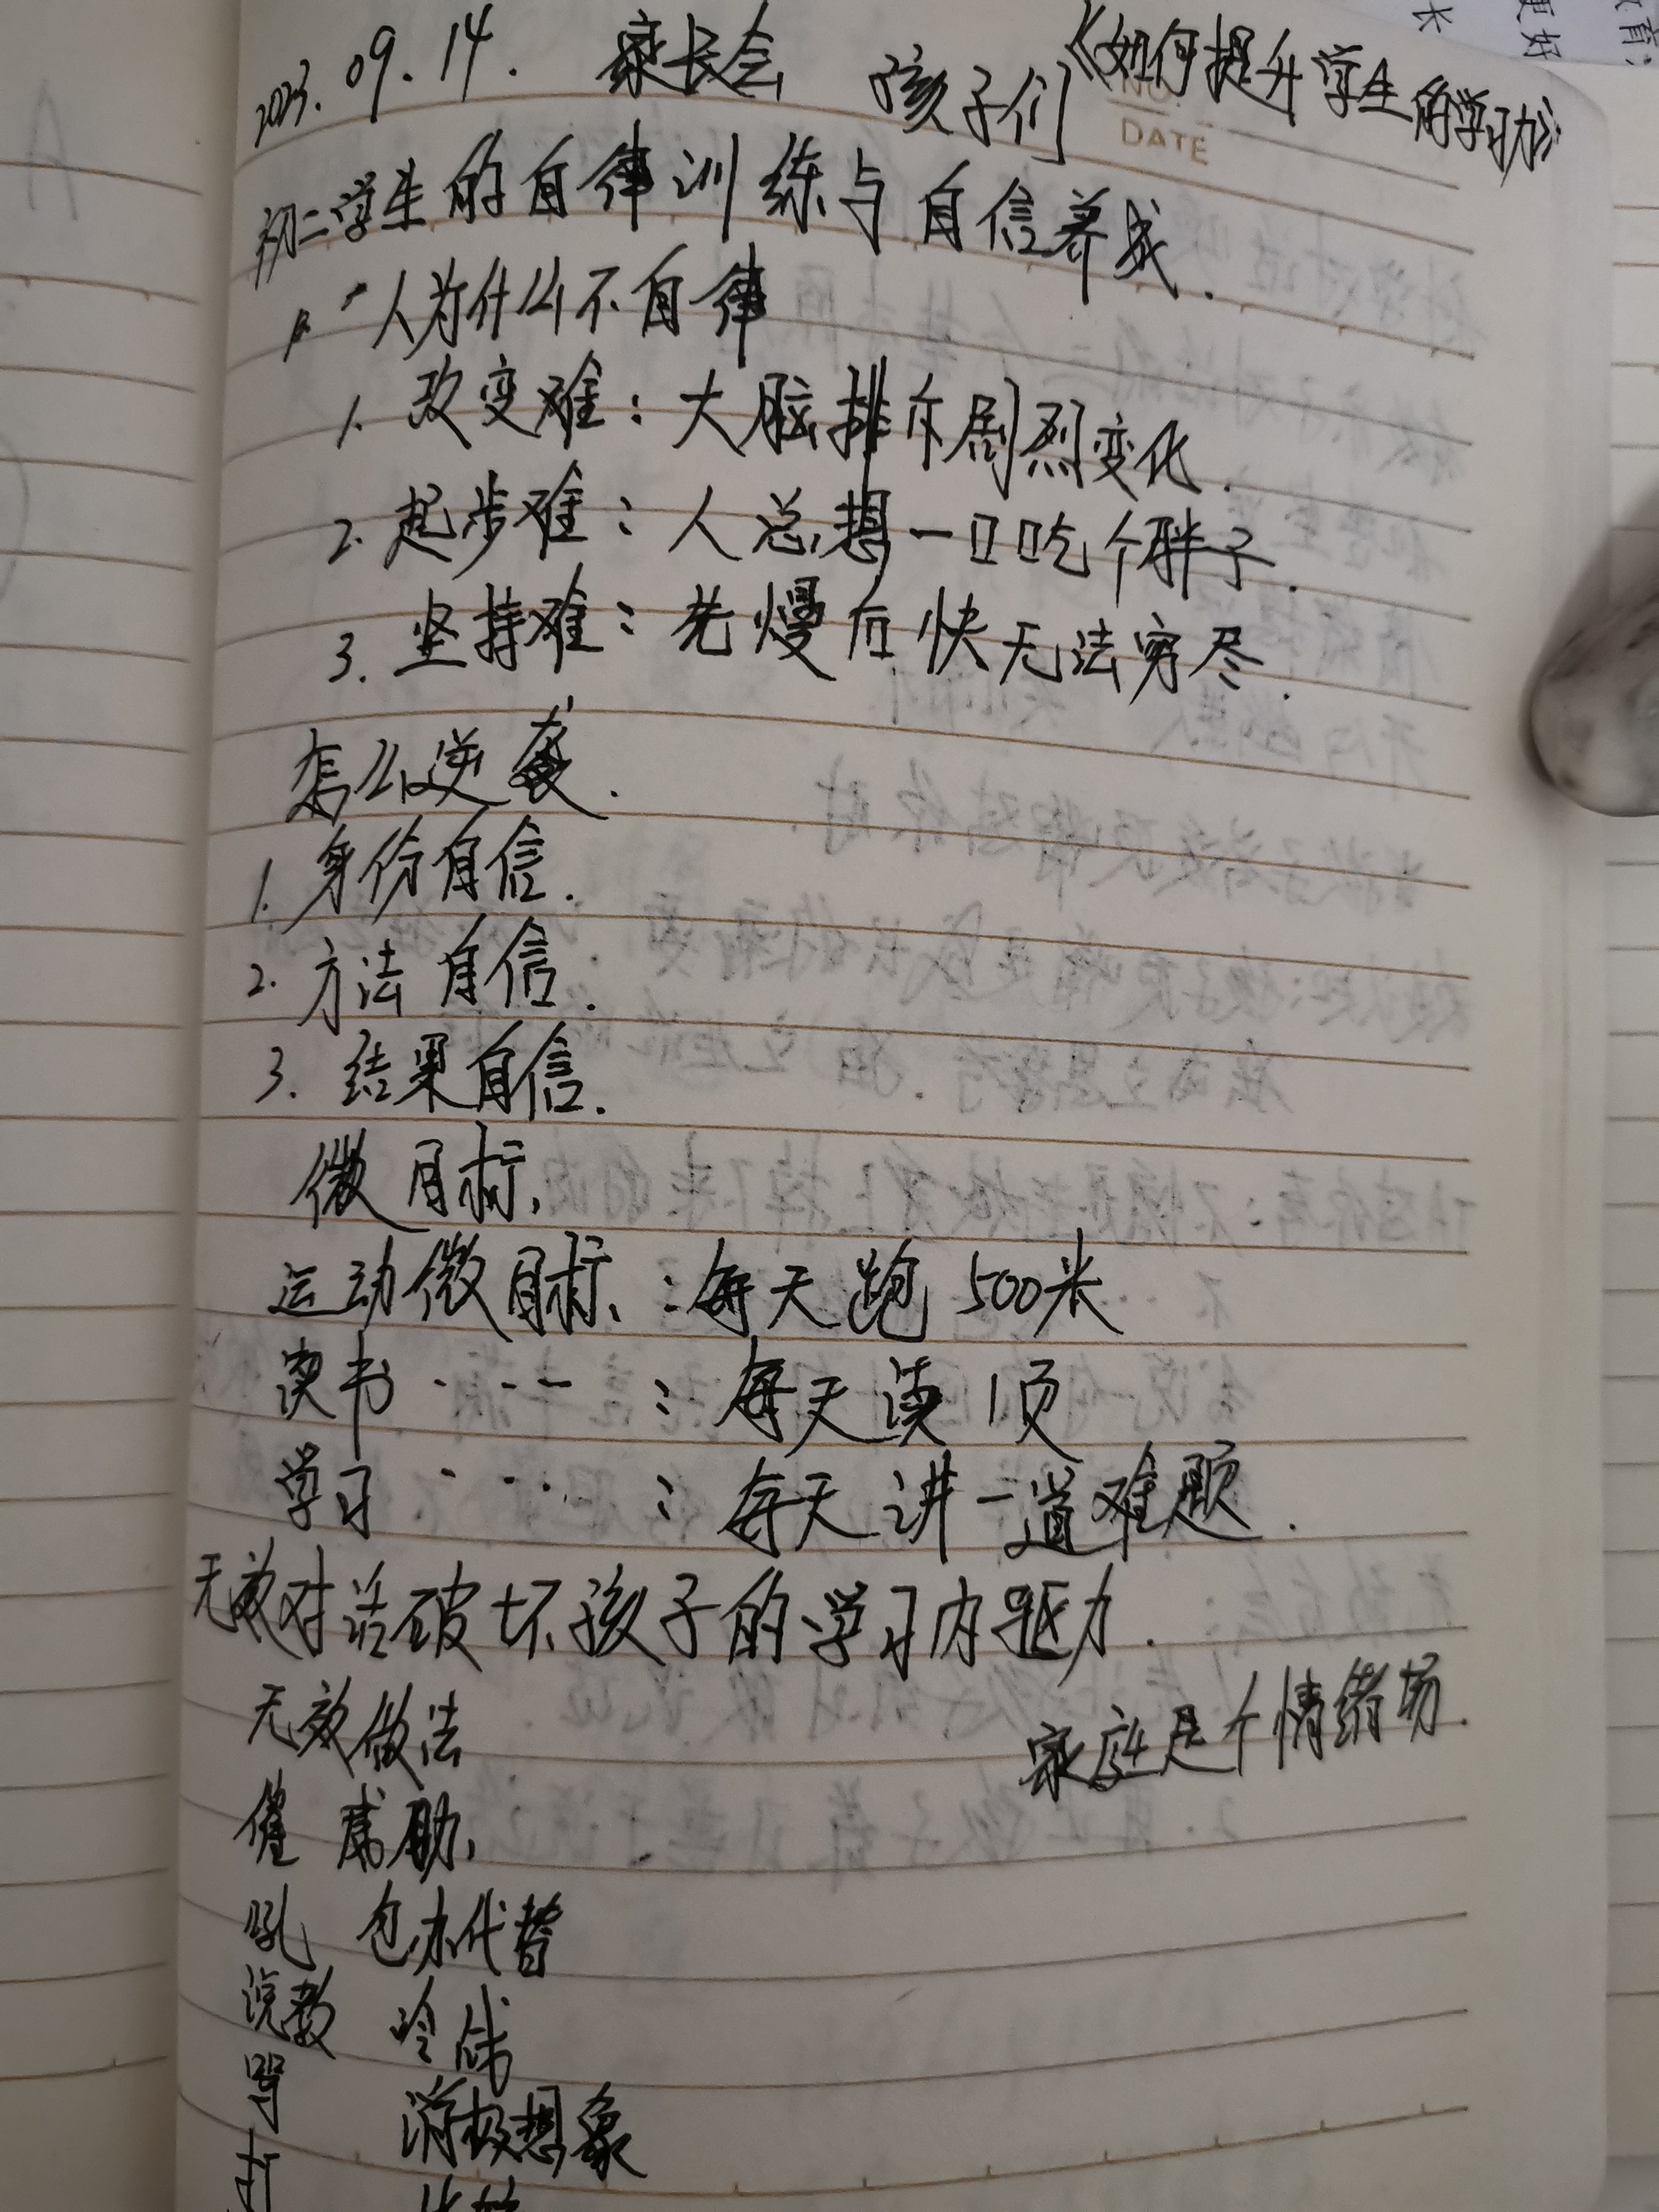 2023.09.14. 家长会 孩子们《如何提升学生的学习力》
NO.
DATE
初二学生的自律训练与自信养成.
人为什么不自律
1. 改变难：大脑排斥剧烈变化.
2. 起步难：人总想一口吃个胖子.
3. 坚持难：先慢后快无法穷尽.
怎么逆袭.
1. 身份自信.
2. 方法自信.
3. 结果自信.
微目标.
运动微目标：每天跑500米
读书····：每天读1页
学习····：每天讲一道难题.
无效对话破坏孩子的学习内驱力.
无效做法 家庭是个情绪场.
催 威胁
吼 包办代替
说教 冷战
骂 消极想象
打